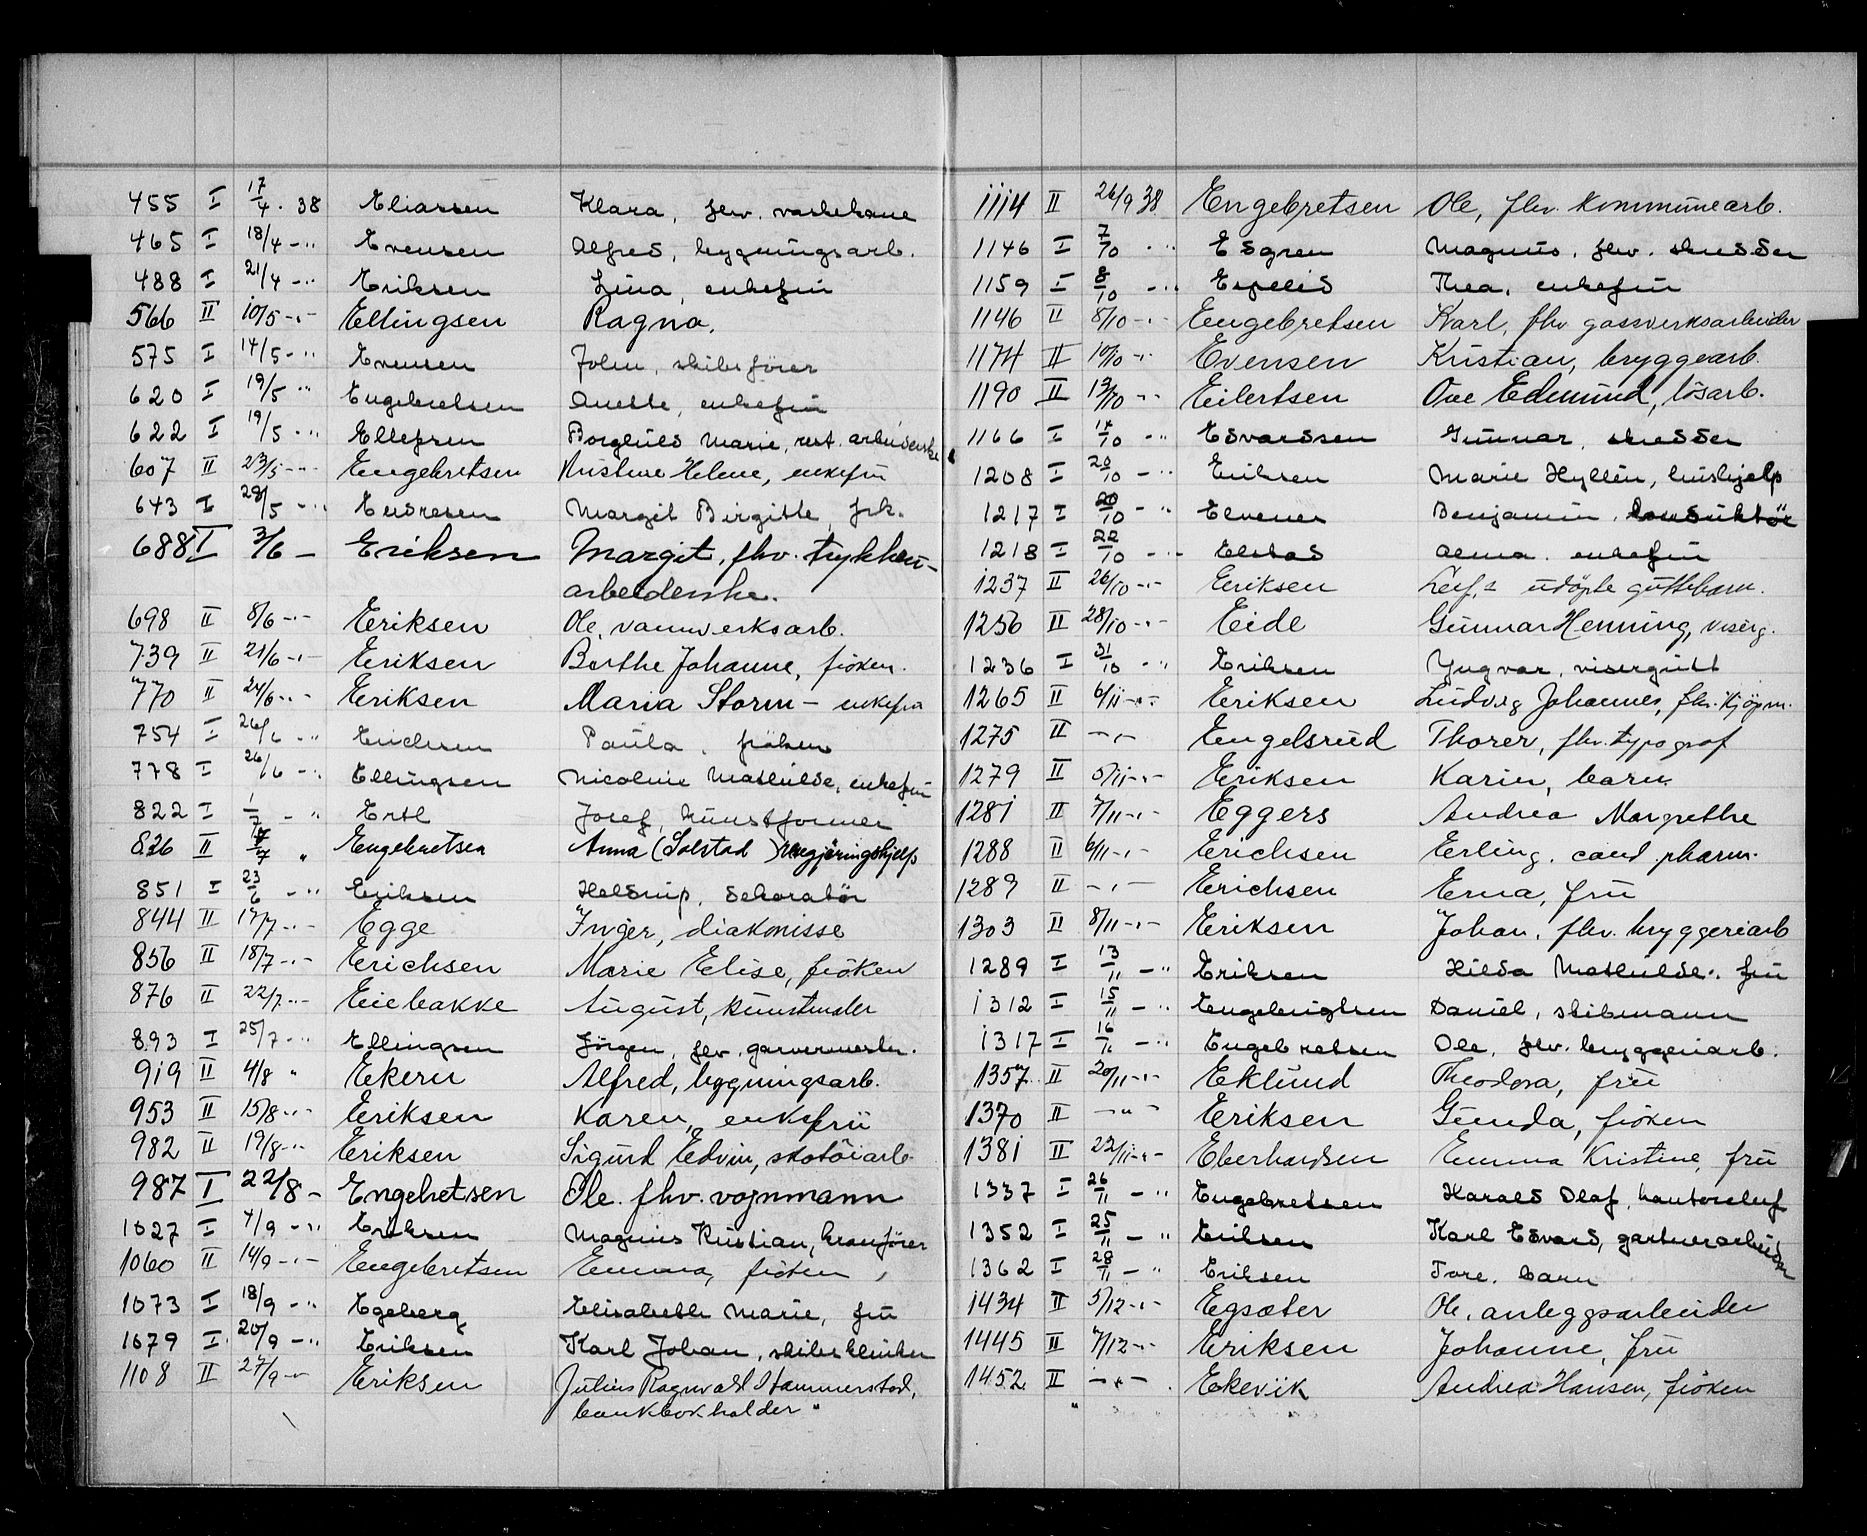 455 I 17/4 . 38 Eliassen Klara, fhv. vaskekone
465 I 18/4 -"- Evensen Alfred, bygningsarb.
488 I 21/4 -"- Eriksen Lina, enkefru
566 II 10/5 -"- Ellingsen Ragna.
575 I 14/5 -"- Evensen John, skibsfører
620 I 19/5 " Engebretsen Anette, enkefru
622 I 19/5 -"- Ellefsen Borghild Marie, rest. arbeiderske
607 II 23/5 -"- Engebretsen Kristine Helene, enkefru
643 I 28/5 -"- Endresen Margit Birgitte, frk.
688 I 3/6 - Eriksen Margit, fhv. trykkeri-
arbeiderske.
698 II 8/6 -"- Eriksen Ole, vannverksarb.
739 II 21/6 -"- Eriksen Berthe Johanne, frøken.
770 II 24/6 -"- Eriksen Maria Storm - enkefru
754 I 26/6 -"- Erichsen Paula, frøken
778 I 26/6 -"- Ellingsen Nicoline Mathilde, enkefru
822 I 1/7 -" Ertl Josef, kunstformer
826 II /7 " Engebretsen Anna (Solstad) rengjøringshjelp
851 I 23/6 -" Eriksen dekoratør
844 II 17/7 -"- Egge Inger, diakonisse
856 II 18/7 -"- Erichsen Marie Elise, frøken
876 II 22/7 -"- Eiebakke August, kunstmaler
893 I 25/7 -"- Ellingsen Jørgen, fhv. garvermester.
919 II 4/8 " Ekern Alfred, bygningsarb.
953 II 15/8 -"- Eriksen Karen, enkefru
982 II 19/8 -"- Eriksen Sigurd Edvin, skotøiarb.
987 I 22/8 - Engebretsen Ole. fhv. vognmann
1027 I 7/9 -"- Eriksen Magnus Kristian, kranfører
1060 II 14/9 -"- Engebretsen Emma, frøken
1073 I 18/9 -"- Egeberg Elisabeth Marie, fru
1079 I 20/9 -"- Eriksen Karl Johan, skibsklinker
1108 II 27/9 -"- Eriksen Julius Ragnvald Hammerstad,
bankbokholder "
1114 II 26/9 38 Engebretsen Ole, fhv. kommunearb.
1146 I 7/10 -"- Edgren Magnus, fhv. skredder
1159 I 8/10 -"- Espelid Thea, enkefru
1146 II 8/10 -"- Engebretsen Karl, fhv gassverksarbeider
1174 II 10/10 -"- Evensen Kristian, bryggearb.
1190 II 13/10 -"- Eilertsen Ove Edmund, løsarb.
1166 I 14/10 -" Edvardsen Gunnar, skredder
1208 I 20/10 -" Eriksen Marie Hyllén, hushjelp
1217 I 20/10 -" Elvenes Benjamin, konduktør
1218 I 22/10 -"- Elstad Alma. enkefru
1237 II 26/10 -"- Eriksen Leif, udøpte guttebarn.
1256 II 28/10 -"- Eide Gunnar Henning, viserg.
1236 I 31/10 -" Eriksen Yngvar, visergutt
1265 II 6/11 -"- Eriksen Ludvig Johannes, fhv. kjøpm.
1275 II -"- Engelsrud Thorer, fhv. typograf
1279 II 5/11 -"- Eriksen Karin, barn
1281 II 7/11 -"- Eggers Andrea Margrethe
1288 II 6/11 -"- Erichsen Erling. cand. pharm.
1289 II -"- Erichsen Erna, fru
1303 II 8/11 -"- Eriksen Johan, fhv. bryggeriarb
1289 I 13/11 -" Eriksen Hilda Mathilde, fru
1312 I 15/11 -" Engebrigtsen Daniel, skibmann
1317 I 16/11 -" Engebretsen Ole, fhv. bryggeriarb.
1357 II 20/11 -"- Eklund Theodora, fru
1370 II -"- Eriksen Gunda, frøken
1381 II 22/11 -"- Eberhardsen Emma Kristine, fru
1337 I 26/11 -" Engebretsen Harald Olaf, kontorchef
1352 I 25/11 -" Eriksen Karl Edvard, gartnerarbeider
1362 I 28/11 -" Eriksen Tore, barn
1434 II 5/12 -"- Egsæter Ole, anleggsarbeider
1445 II 7/12 -"- Eriksen Johanne, fru
1452 II -"- Ekevik Andrea Hansen, frøken